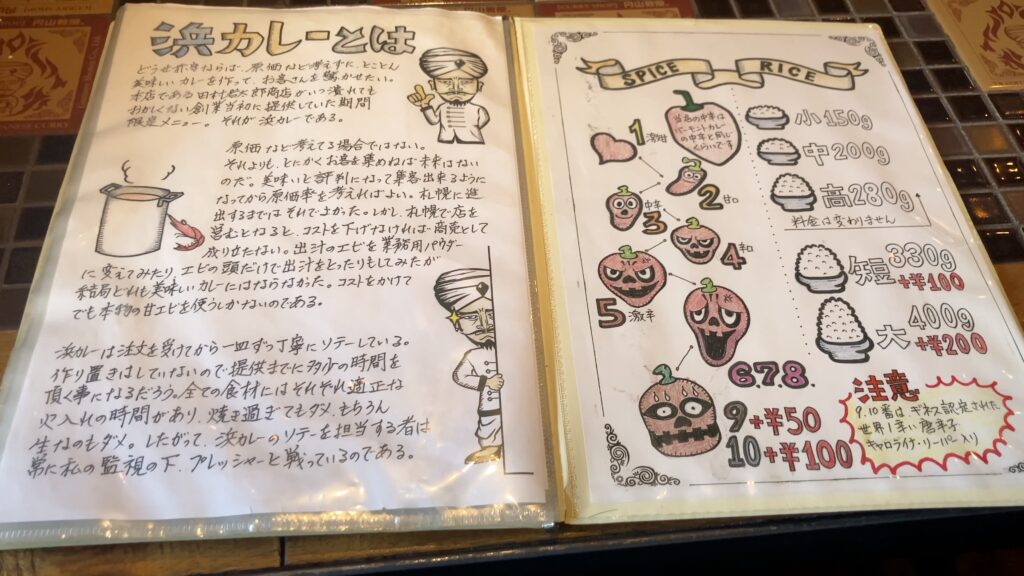 浜カレーとは
どうせ赤字ならば、原価など考えずに、とことん
美味いカレーを作って、お客さんを驚かせたい。
本店である田村岩太郎商店がいつ潰れても
おかしくない創業当初に提供していた期間
限定メニュー。それが浜カレーである。
原価など考えてる場合ではない。
それよりも、とにかくお客を集めねば未来はない
のだ。美味いと評判になって集客出来るように
なってから原価率を考えればよい。札幌に進
出するまではそれでよかった。しかし、札幌で店を
営むとなると、コストを下げなければ商売として
成り立たない。出汁のエビを業務用パウダー
に変えてみたり、エビの頭だけで出汁をとったりもしてみたが
結局どれも美味しいカレーにはならなかった。コストをかけて
でも本物の甘エビを使うしかないのである。
浜カレーは注文を受けてから一皿ずつ丁寧にソテーしている。
作り置きはしていないので提供までに多少の時間を
頂く事になるだろう。全ての食材にはそれぞれ適正な
火入れの時間があり、焼き過ぎてもダメ、もちろん
生なのもダメ。したがって、浜カレーのソテーを担当する者は
常に私の監視の下、プレッシャーと戦っているのである。
SPICE RICE
当店の中辛は
バーモントカレー
の中辛と同じ
くらいです
1 激甘
2 甘口
3 中辛
4 辛口
5 激辛
6.7.8.
9 +¥50
10 +¥100
小 150g
中 200g
高 280g
料金は変わりません
短 330g
+¥100
大 400g
+¥200
注意
9、10番はギネス認定された
世界1辛い唐辛子
キャロライナ・リーパー入り